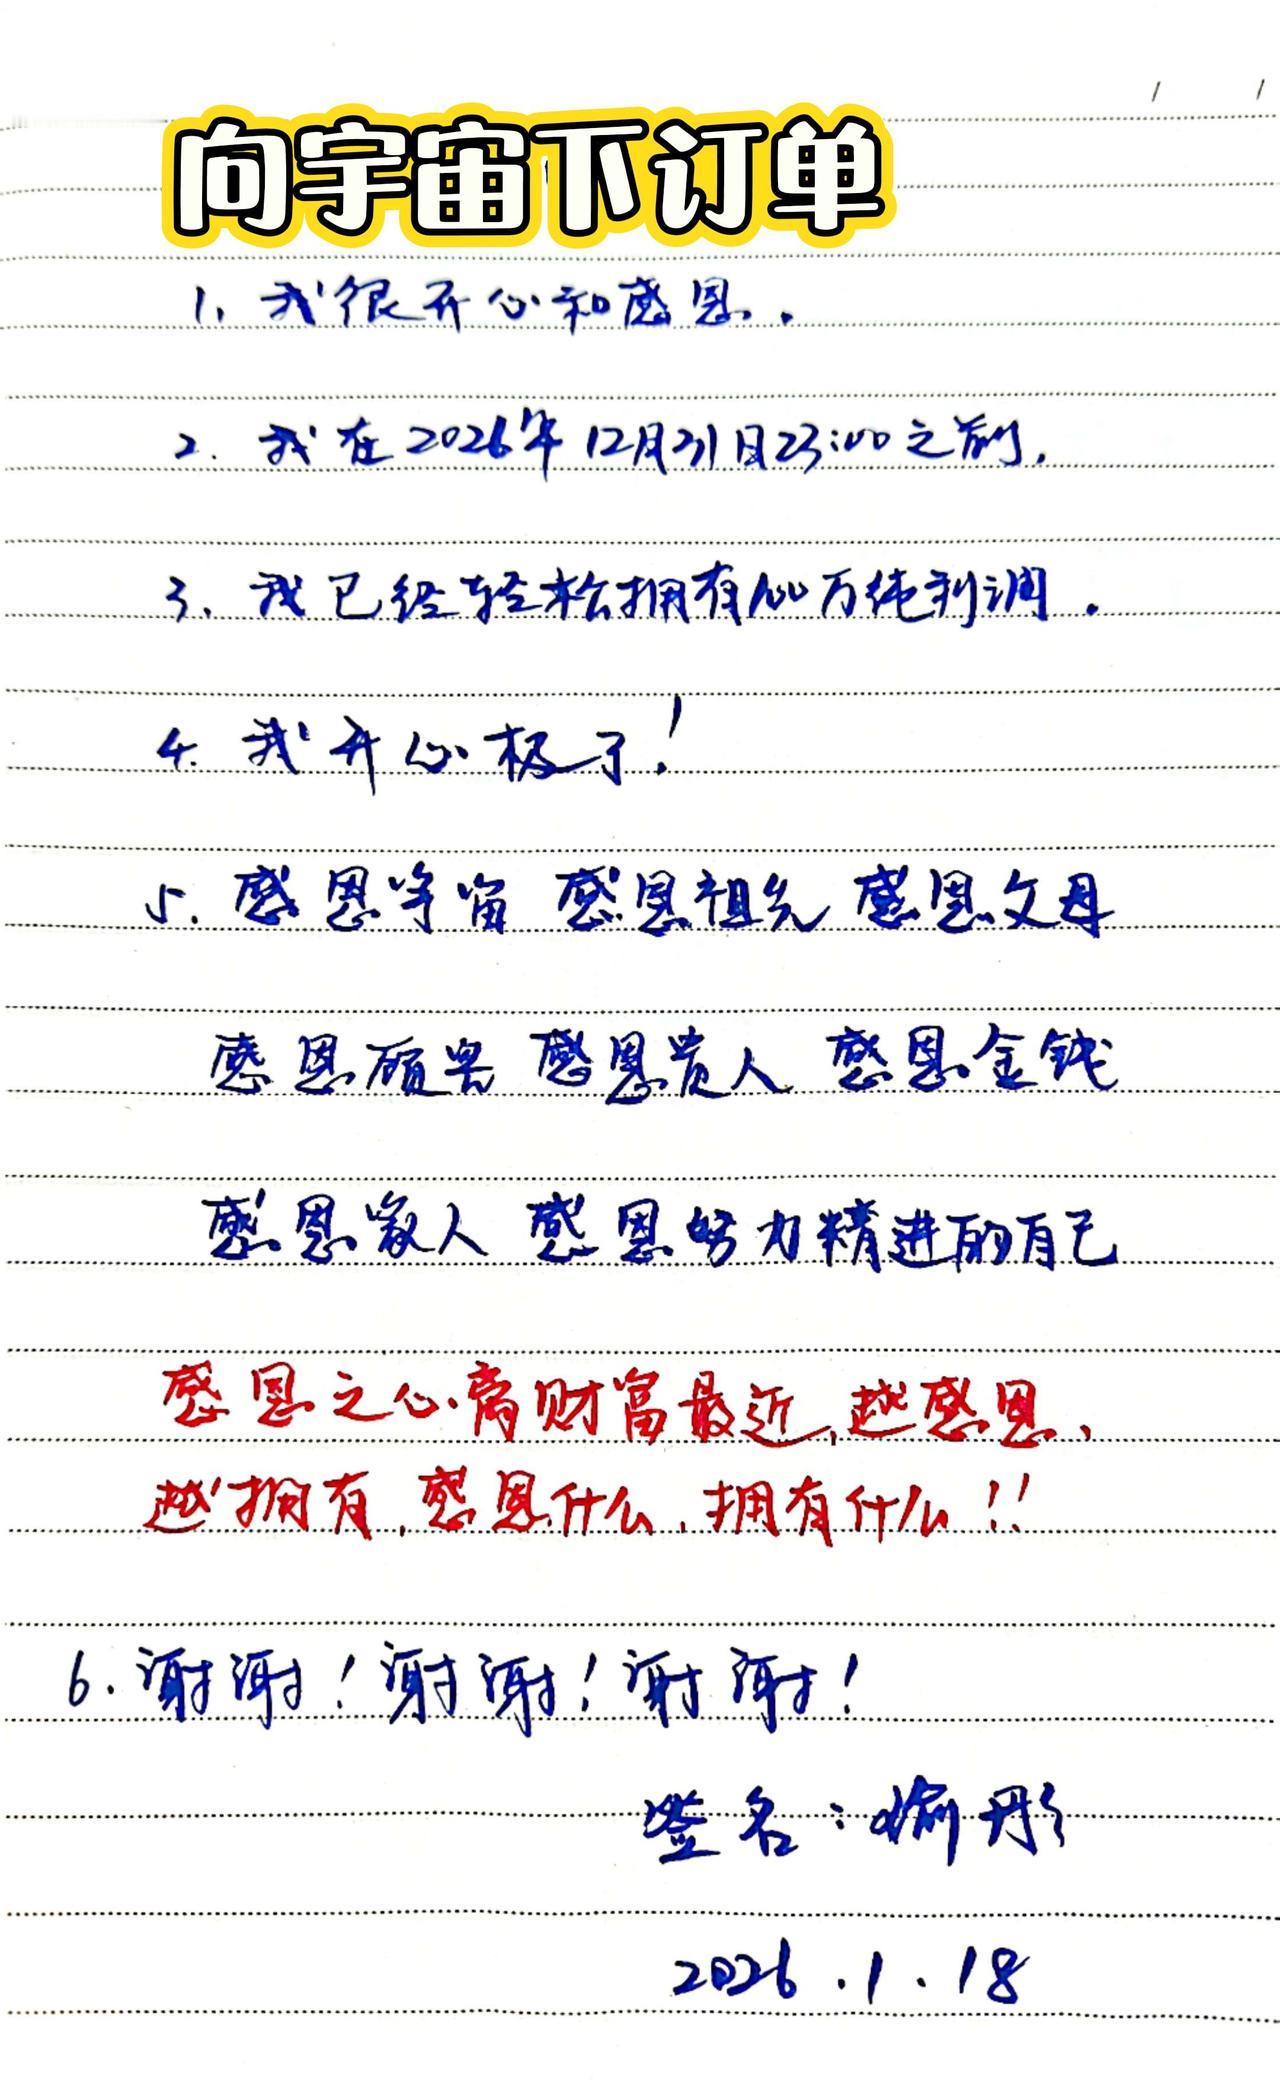 向宇宙下订单
1. 我很开心和感恩.
2. 我在2026年12月31日23:00之前,
3. 我已经轻松拥有100万纯利润.
4. 我开心极了!
5. 感恩宇宙 感恩祖先 感恩父母
感恩顾客 感恩贵人 感恩金钱
感恩家人 感恩努力精进的自己
感恩之心离财富最近,越感恩,
越拥有,感恩什么,拥有什么!!
6. 谢谢!谢谢!谢谢!
签名:
2026.1.18